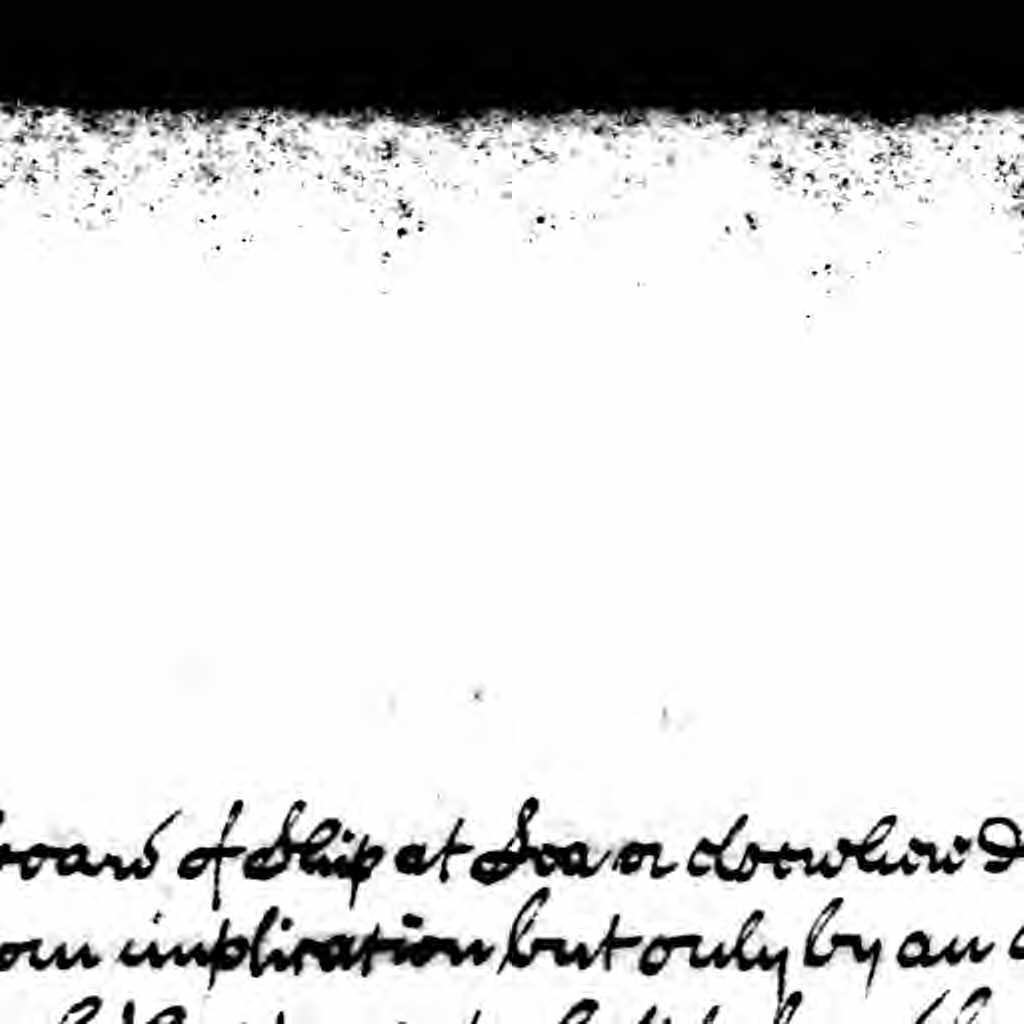 board of Ship at Sea or elsewhere D
om implication but only by an